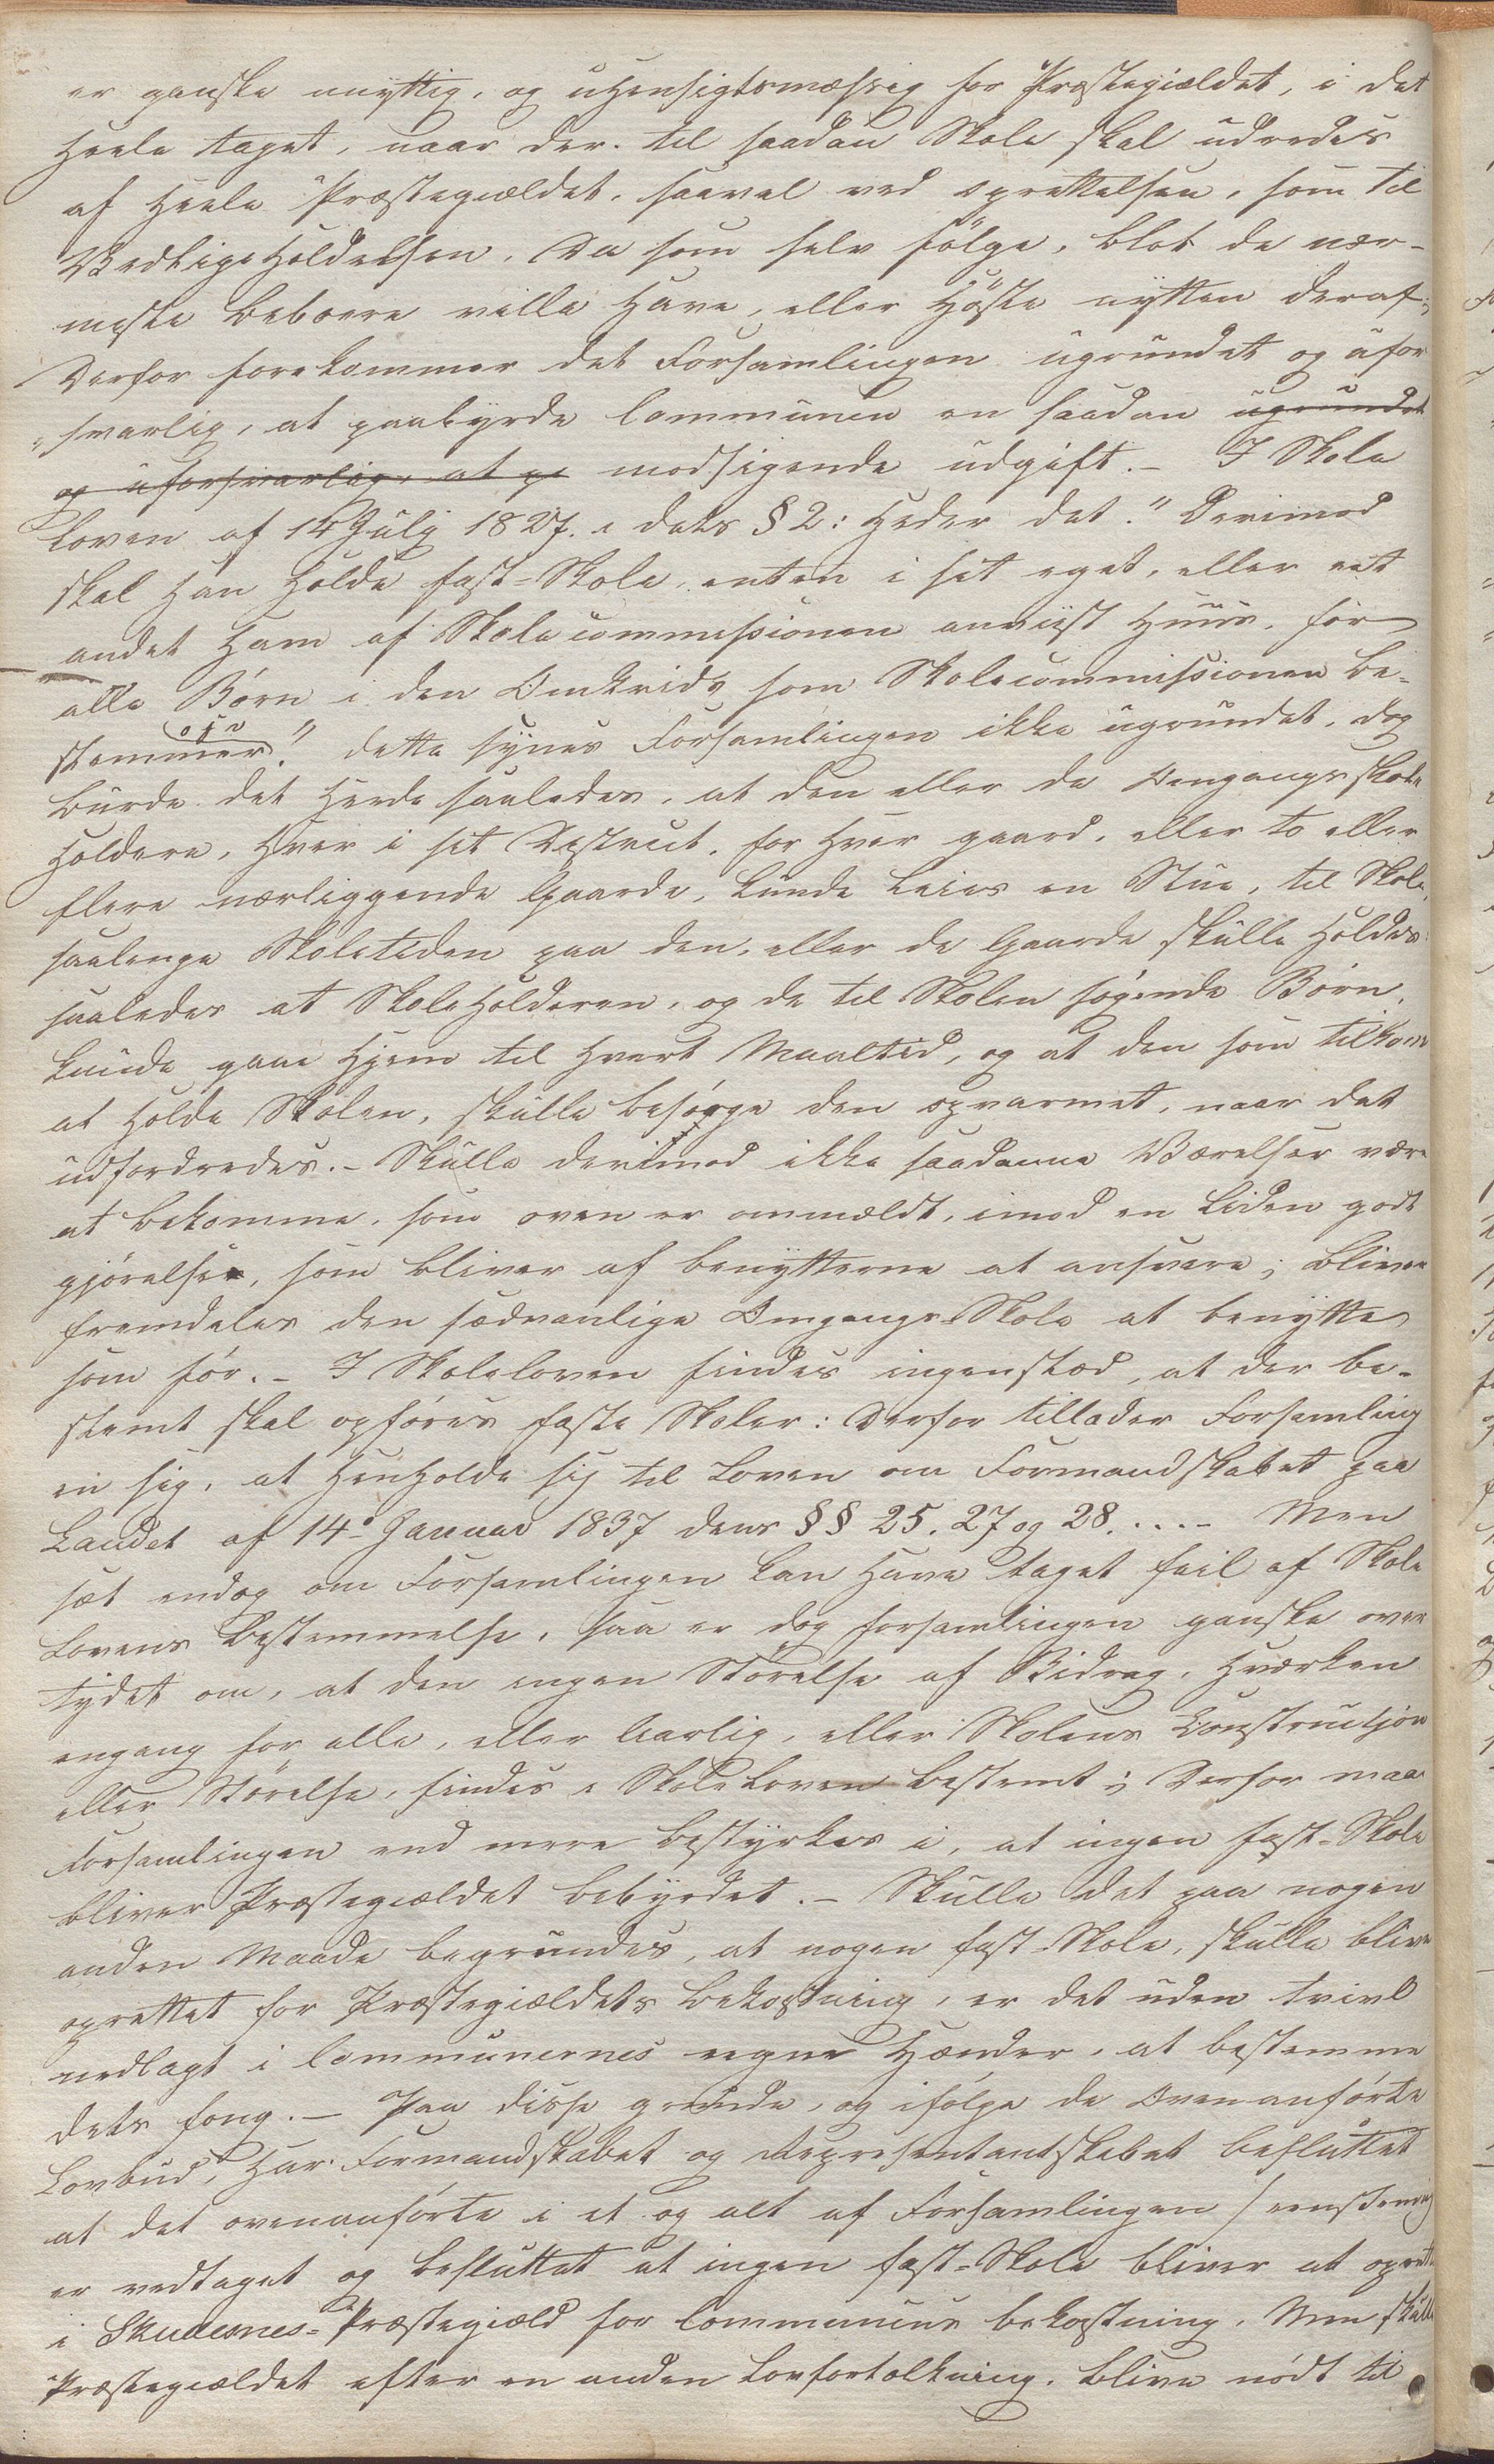 er ganske unyttig, og uhensigtsmæssig for Præstegiældet, i det
Heele taget, naar der til saadan Skole skal udredes
af Heele Præstegiældet, saavel ved oprettelsen, som til
Vedligeholdelsen. Da som selv følge, blot de nær-
meste beboere ville have, eller høste nytten deraf;
Derfor forekommer det Forsamlingen ugrundet og ufor
svarlig, at paabyrde Communen en saadan ugrundet
og uforsvarlig, at pa modsigende udgift. – I Skole
Loven af 14 Julj 1827. i dets § 2: heder det: "Derimod
skal han holde fast-Skole, enten i sit eget, eller et
andet ham af Skolecommissionen anviist Huus, for
alle Børn i den Omkrids som Skolecommissionen be-
stemmer osv." dette synes Forsamlingen ikke ugrundet, dog
burde det Hede saaledes, at den eller de Omgangsskole
holdere, hver i sit Destrict, for hver gaard, eller to eller
flere nærliggende Gaarde, kunde leies en Stue, til Skole,
saalenge Skoletiden paa den, eller de Gaarde skulle holdes:
saaledes at Skoleholderen, og de til Skolen søgende Børn,
kunde gaae hjem til hvert Maaltid, og at den som tilkom
at holde Skolen, skulle besørge den opvarmet, naar det
udfordredes. – Skulle derimod ikke saadanne Værelser være
at bekomme, som oven er ommældt, imod en liden godt
gjørelse, som bliver af benytterne at ansvare; bliver
fremdeles den sædvanlige Omgangs-Skole at benyttes
som før. – I Skoleloven findes ingensted, at der be-
stemt skal opføres faste Skoler: Derfor tillader Forsamling
en sig, at henholde sig til Loven om Formandskabet paa
Landet af 14de Januar 1837 dens §§ 25. 27 og 28. ... – Men
sæt endog om Forsamlingen kan have taget feil af Skole
Lovens Bestemmelse, saa er dog forsamlingen ganske over
tydet om, at den ingen Størelse af Bidrag, Hværken
engang for alle, eller Aarlig, eller Skolens Construction
eller Størelse, findes i Skoleloven bestemt; Derfor maa
Forsamlingen end mere bestyrkes i, at ingen fast-Skole
bliver Præstegiældet bebyrdet. – Skulle det paa nogen
anden Maade begrundes, at nogen fast-Skole, skulle blive
oprettet for Præstegiældets bekostning, er det uden tvivl
nedlagt i Communernes eegne Hænder, at bestemme
dets fong. – Paa disse grunde, og ifølge de Ovenanførte
Lovbud, har Formandskabet og Representantskabet besluttet
at det ovenanførte i et og alt af Forsamlingen / eenstemig
er vedtaget og besluttet at ingen fast-Skole bliver at oprette
i Skudesnes-Præstegiæld for Communens bekostning. Men skulle
Præstegiældet efter en anden Lovfortolkning, blive nødt til